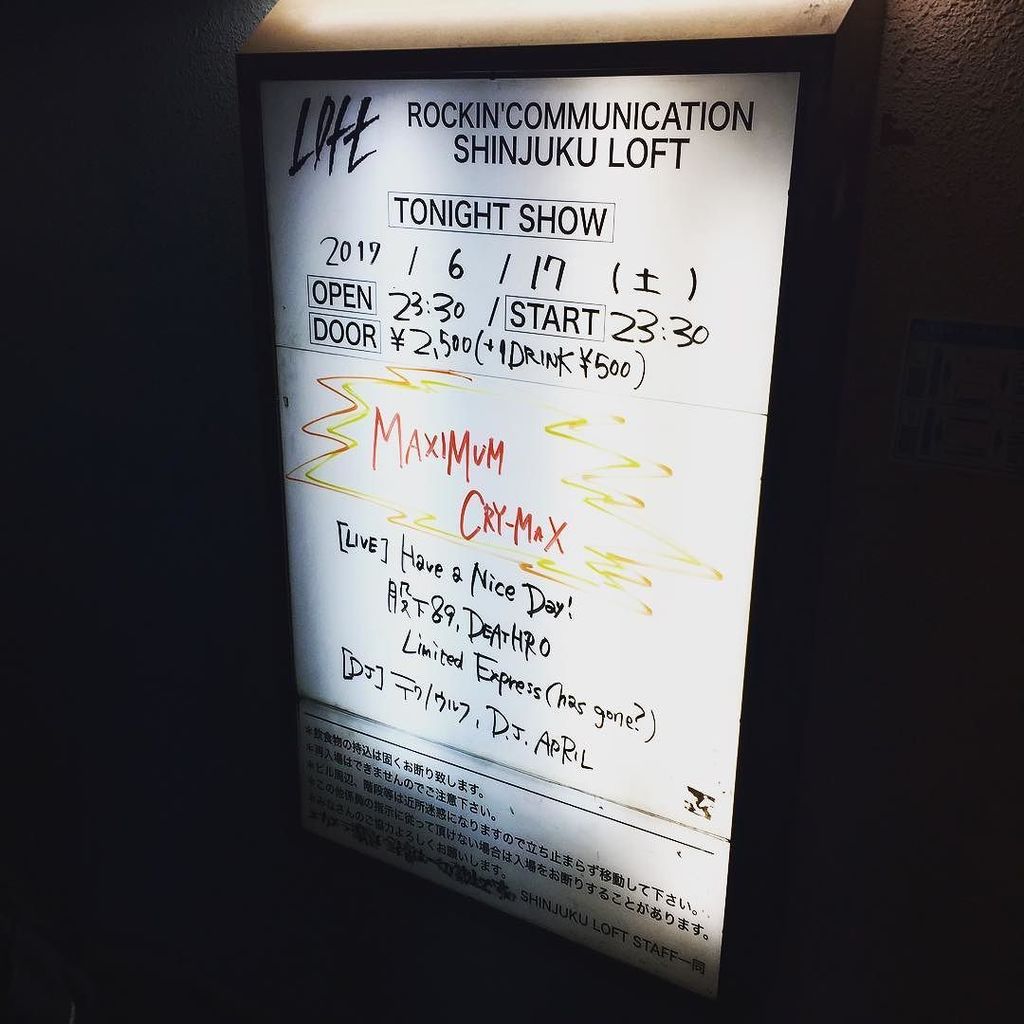 Loft ROCKIN'COMMUNICATION
SHINJUKU LOFT
TONIGHT SHOW
2017 / 6 / 17 (土)
OPEN 23:30 / START 23:30
DOOR ¥2,500(+1DRINK ¥500)
MAXIMUM
CRY-MAX
[LIVE] Have a Nice Day!
股下89, DEATHRO
Limited Express (has gone?)
[DJ] テクノウルフ, D.J. APRIL
*飲食物の持込は固くお断り致します。
*再入場はできませんのでご注意下さい。
*ビル周辺、階段等は近所迷惑になりますので立ち止まらず移動して下さい。
*この他係員の指示に従って頂けない場合は入場をお断りすることがあります。
*みなさんのご協力よろしくお願いします。
SHINJUKU LOFT STAFF一同